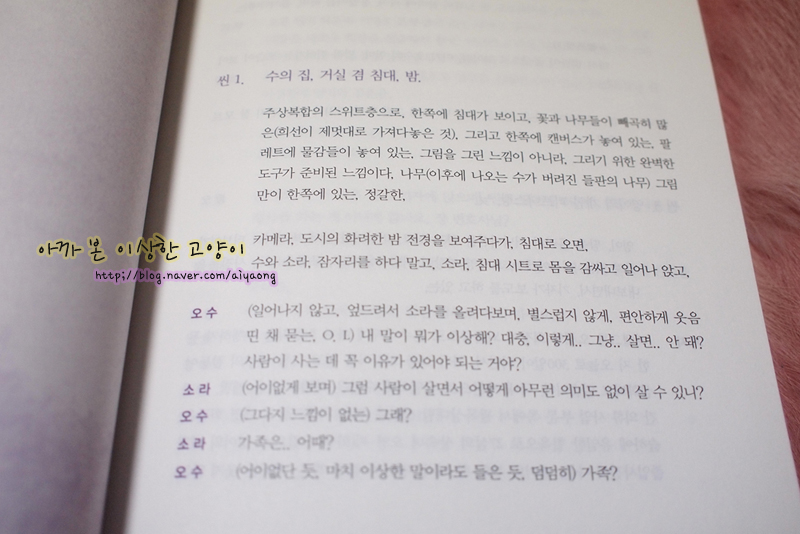 씬 1. 수의 집, 거실 겸 침대, 밤.
주상복합의 스위트층으로, 한쪽에 침대가 보이고, 꽃과 나무들이 빼곡히 많
은(희선이 제멋대로 가져다놓은 것). 그리고 한쪽에 캔버스가 놓여 있는, 팔
레트에 물감들이 놓여 있는, 그림을 그린 느낌이 아니라, 그리기 위한 완벽한
도구가 준비된 느낌이다, 나무(이후에 나오는 수가 버려진 들판의 나무) 그림
만이 한쪽에 있는, 정갈한,
카메라, 도시의 화려한 밤 전경을 보여주다가, 침대로 오면,
수와 소라, 잠자리를 하다 말고, 소라, 침대 시트로 몸을 감싸고 일어나 앉고,
아까 본 이상한 고양이
http://blog.naver.com/aiyaong
오수 (일어나지 않고, 엎드려서 소라를 올려다보며, 별스럽지 않게, 편안하게 웃음
띤 채 묻는, O. L) 내 말이 뭐가 이상해? 대충, 이렇게.. 그냥.. 살면.. 안 돼?
사람이 사는 데 꼭 이유가 있어야 되는 거야?
소라 (어이없게 보며) 그럼 사람이 살면서 어떻게 아무런 의미도 없이 살 수 있니?
오수 (그다지 느낌이 없는) 그래?
소라 가족은.. 어때?
오수 (어이없단 듯, 마치 이상한 말이라도 들은 듯, 덤덤히) 가족?